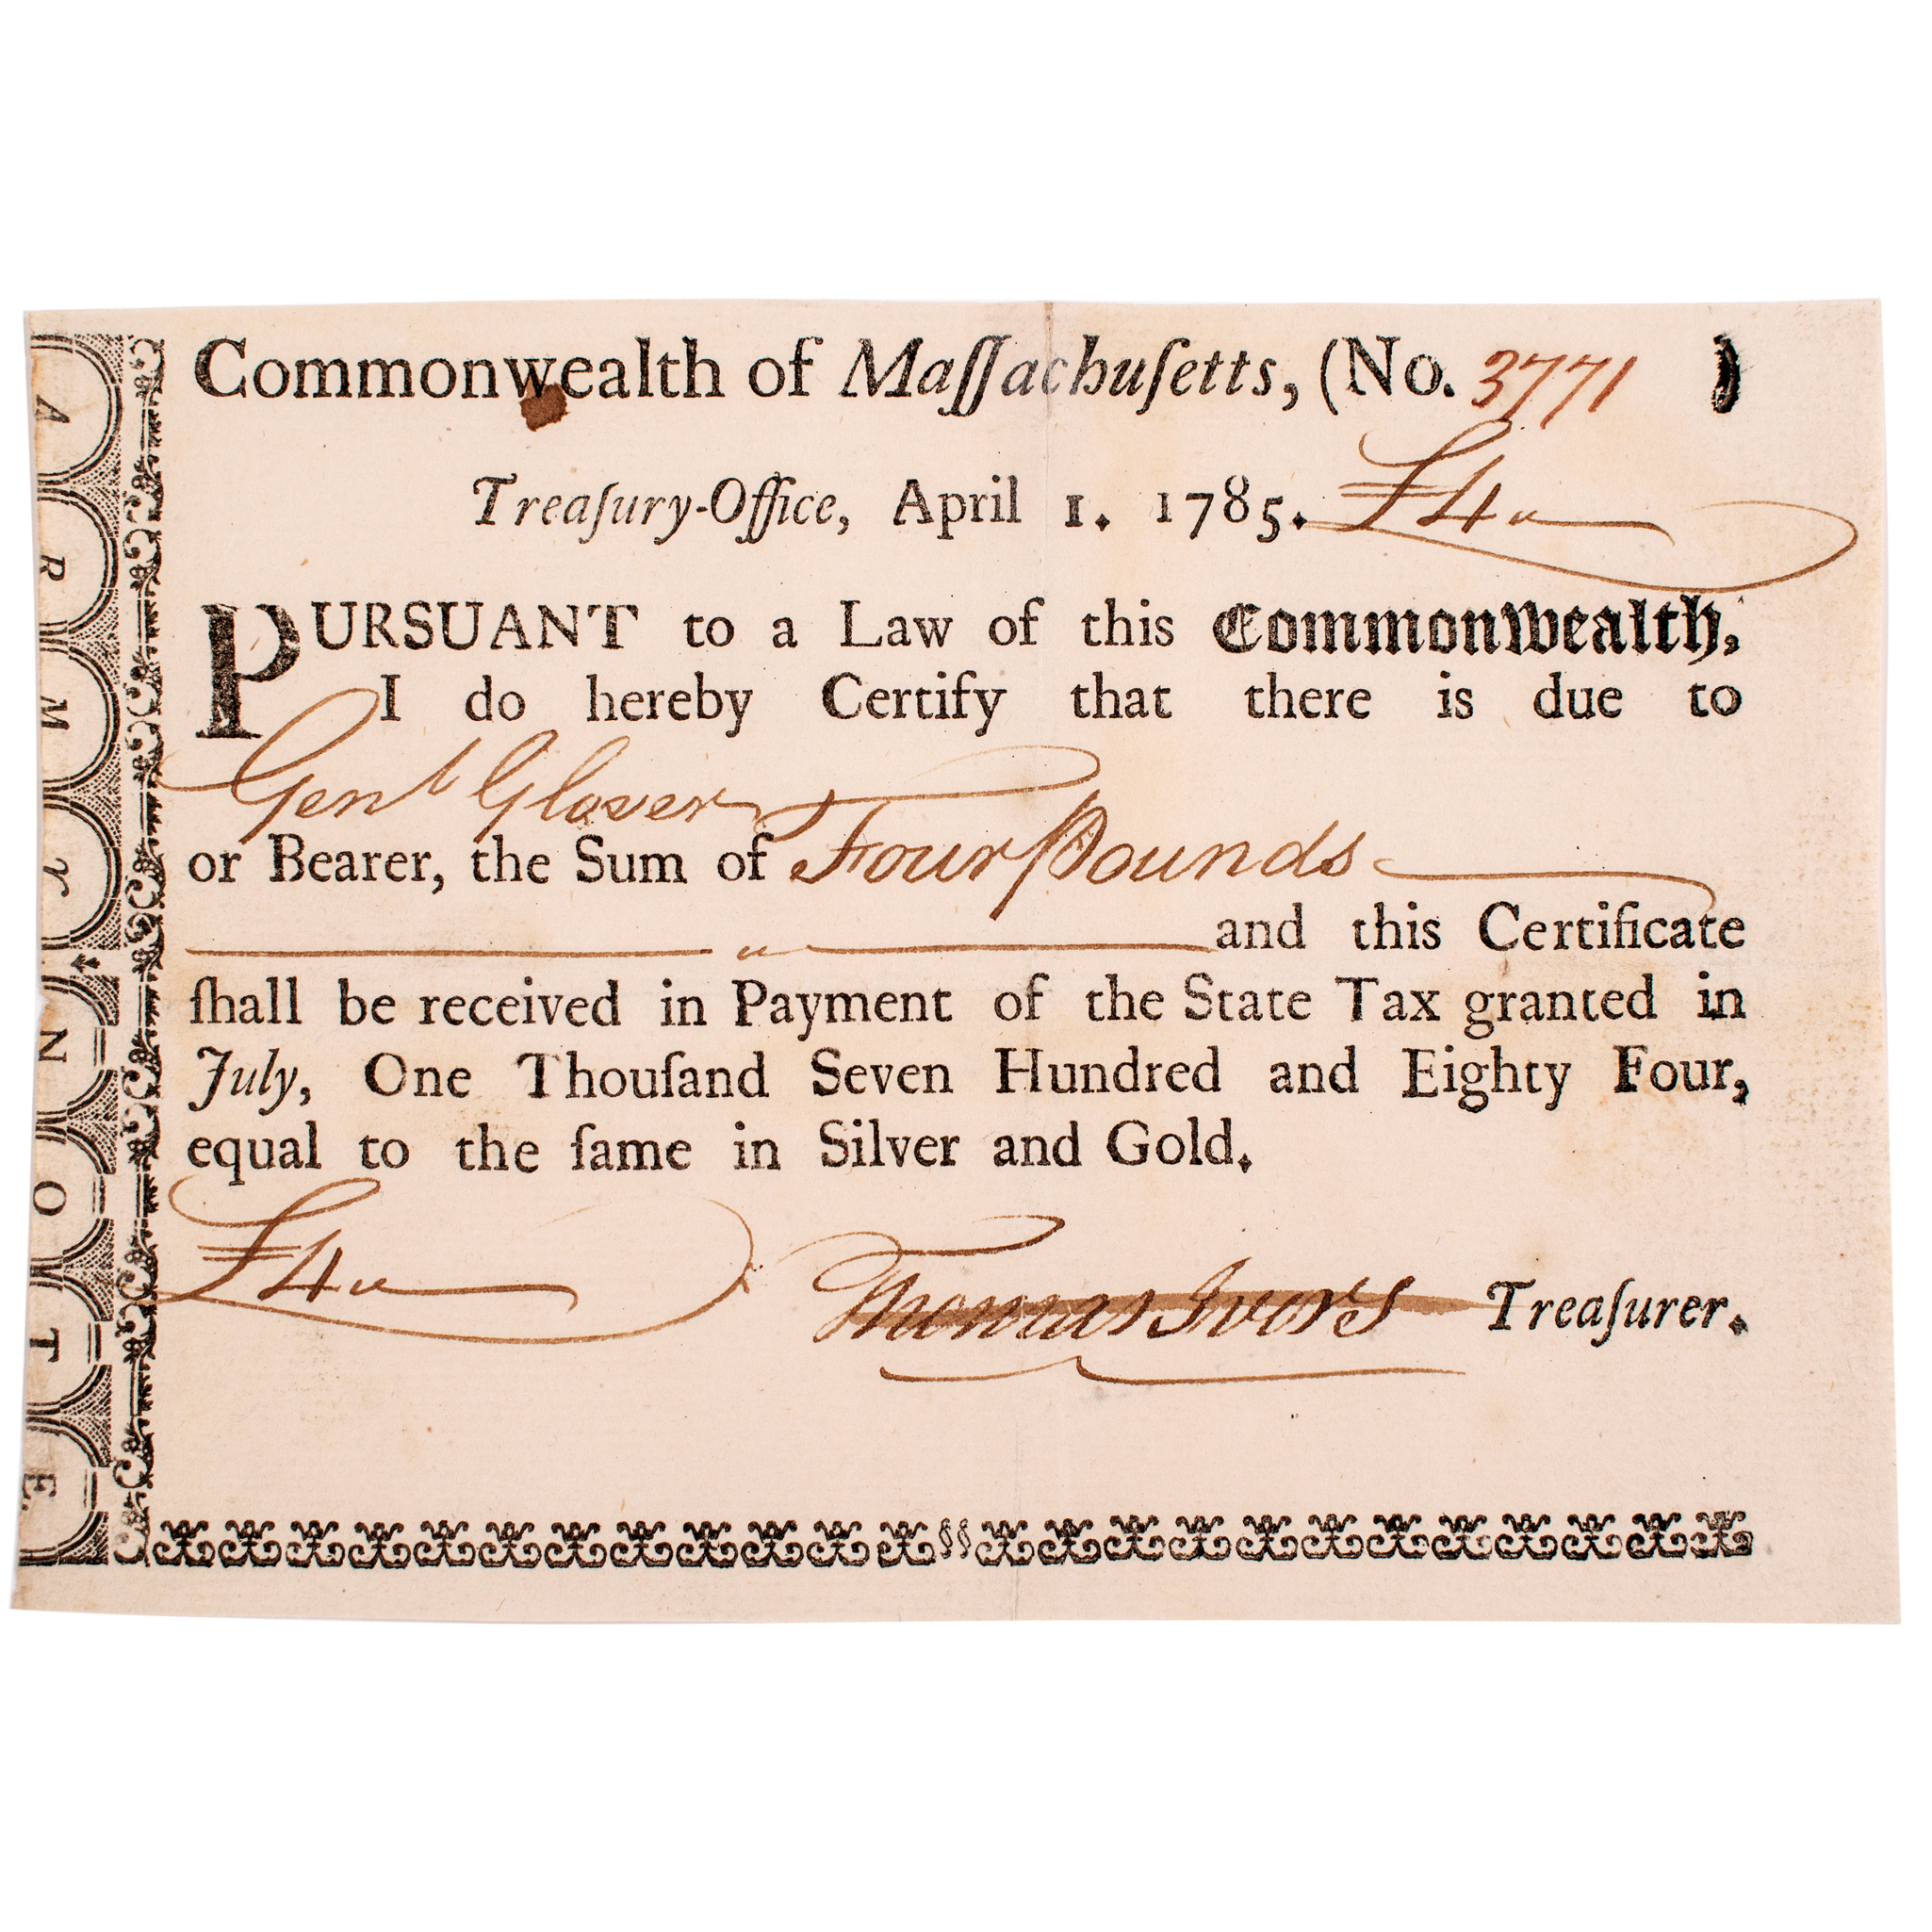 Commonwealth of Maſſachuſetts, (No. 3771 )
Treaſury-Office, April 1. 1785. £4 "
PURSUANT to a Law of this Commonwealth,
I do hereby Certify that there is due to
Genl Glover
or Bearer, the Sum of Four Pounds
" and this Certificate
ſhall be received in Payment of the State Tax granted in
July, One Thouſand Seven Hundred and Eighty Four,
equal to the ſame in Silver and Gold.
£4 "
Thomas Ivers Treaſurer.
ARMY NOTE